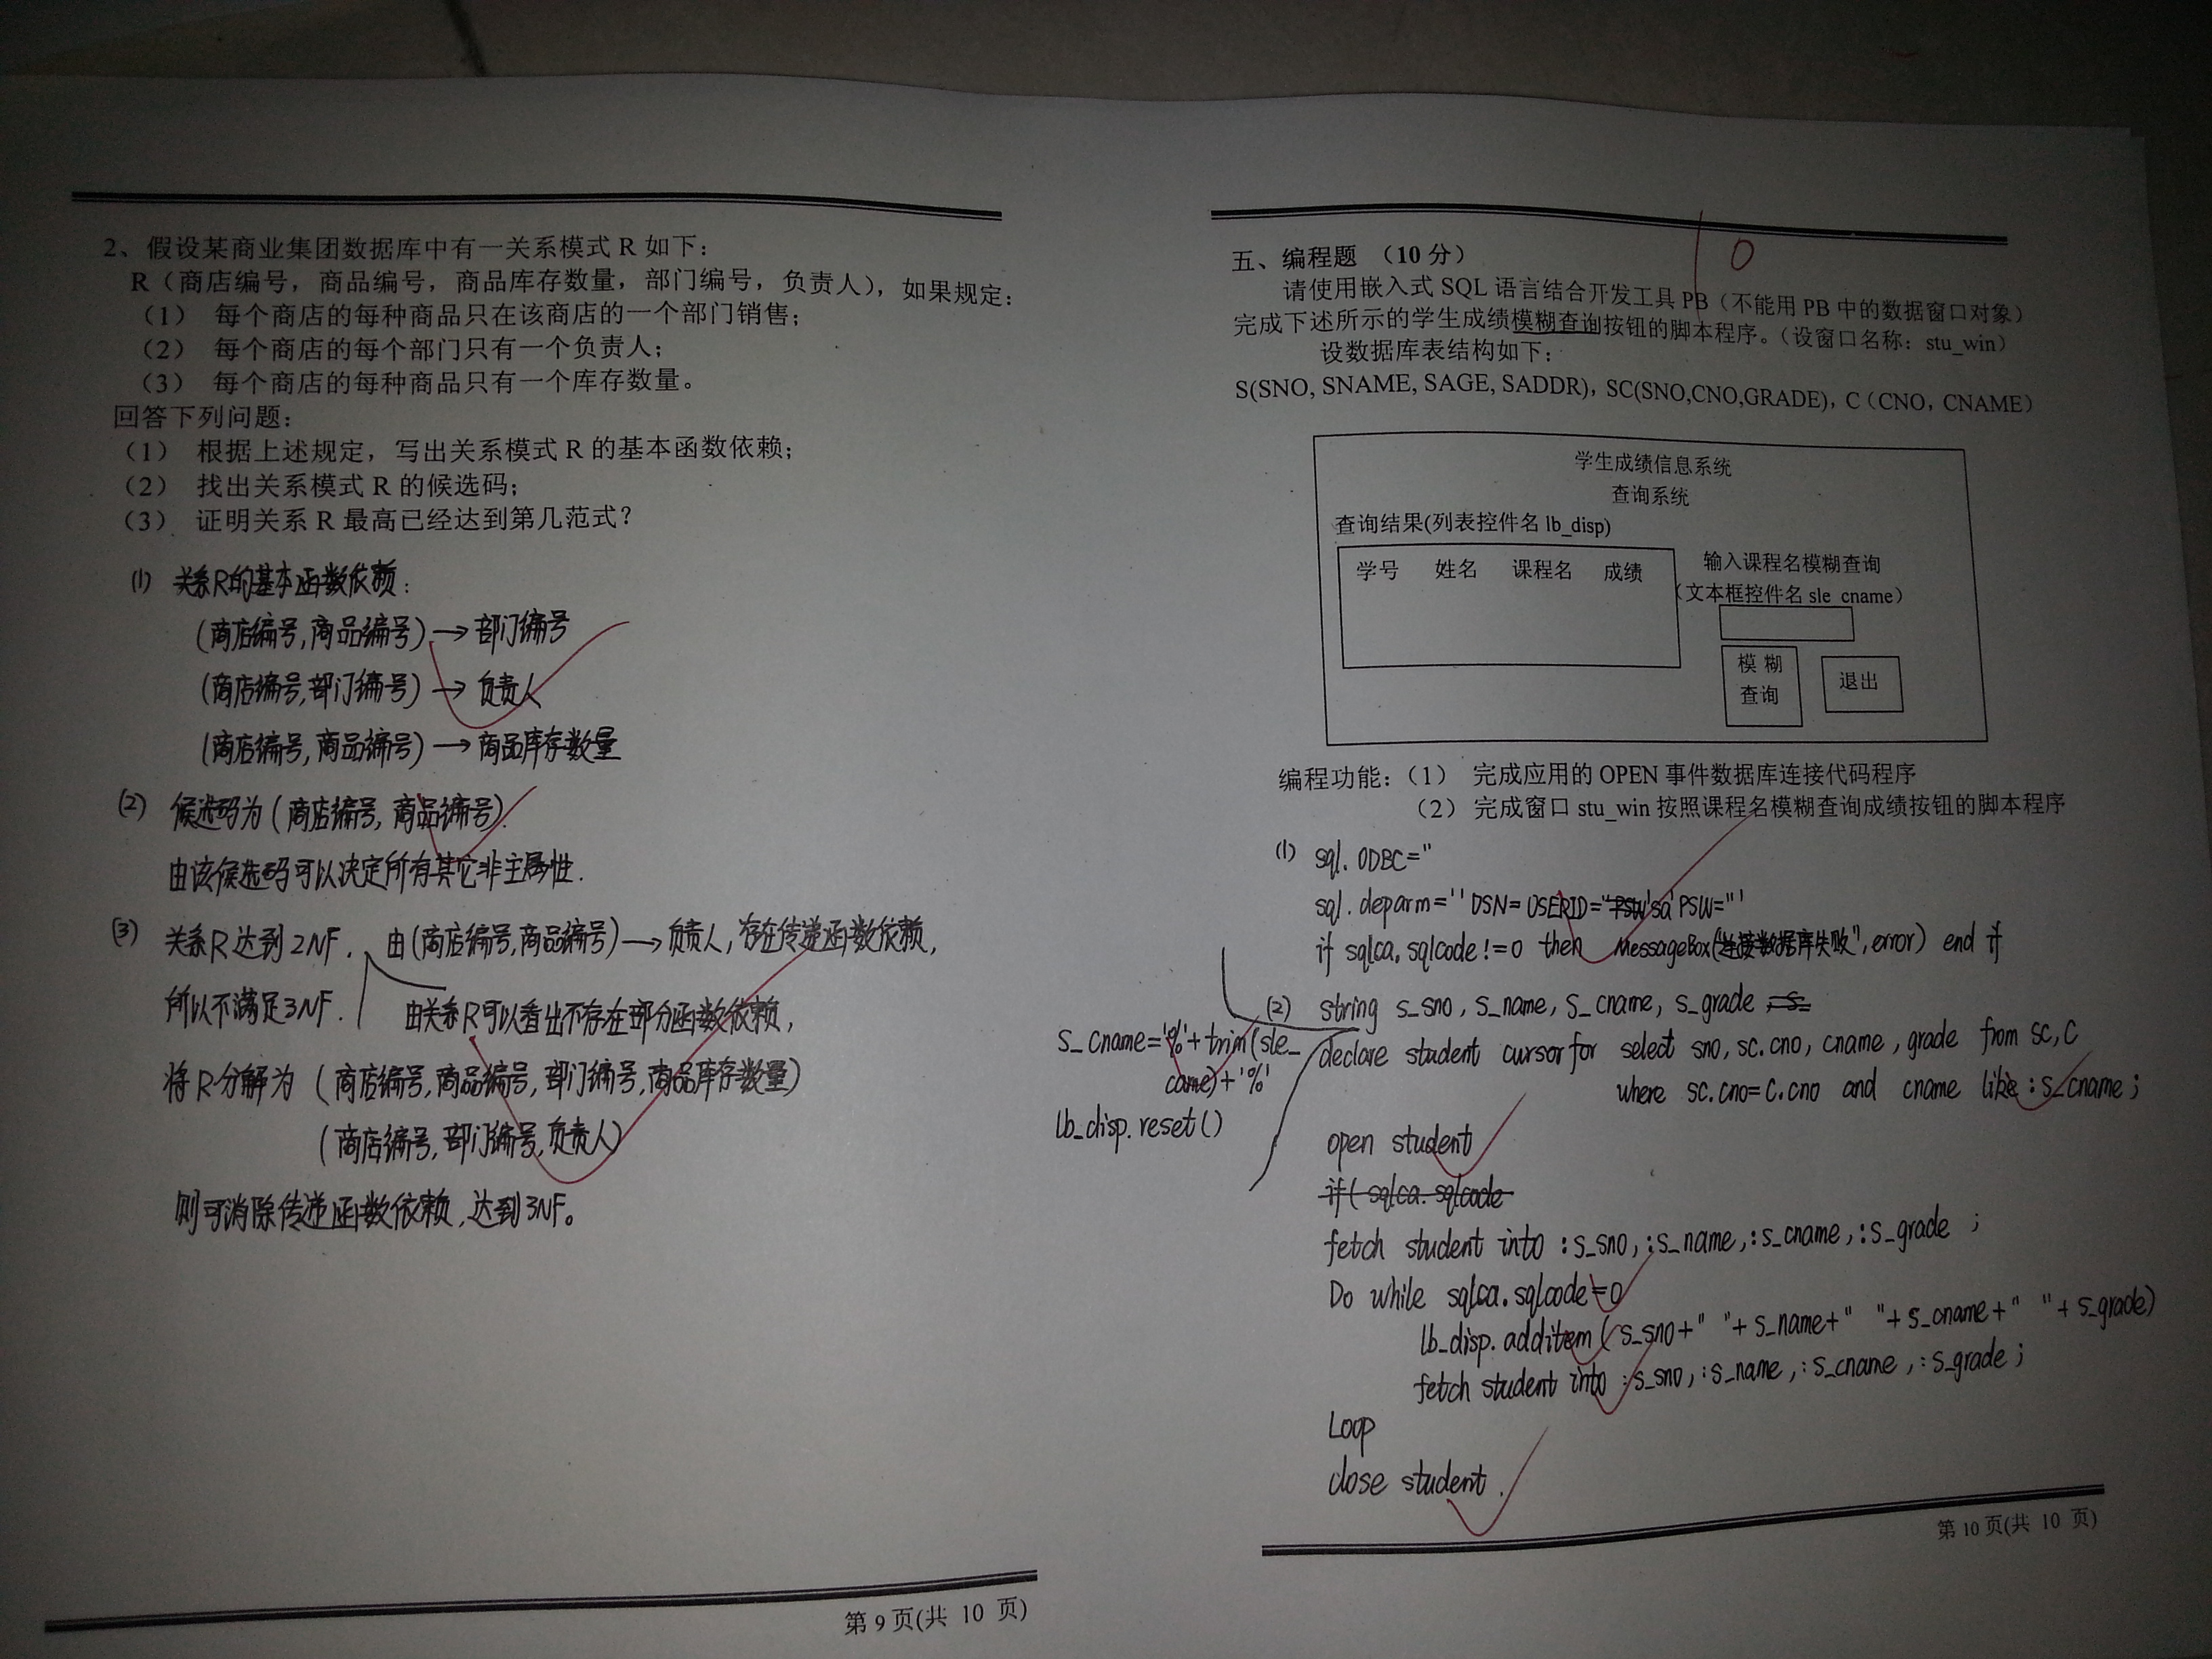 2、假设某商业集团数据库中有一关系模式 R 如下：
R（商店编号，商品编号，商品库存数量，部门编号，负责人），如果规定：
（1） 每个商店的每种商品只在该商店的一个部门销售；
（2） 每个商店的每个部门只有一个负责人；
（3） 每个商店的每种商品只有一个库存数量。
回答下列问题：
（1） 根据上述规定，写出关系模式 R 的基本函数依赖；
（2） 找出关系模式 R 的候选码；
（3） 证明关系 R 最高已经达到第几范式？
(1) 关系R的基本函数依赖：
(商店编号,商品编号)→部门编号
(商店编号,部门编号)→负责人
(商店编号,商品编号)→商品库存数量
(2) 候选码为(商店编号,商品编号).
由该候选码可以决定所有其它非主属性.
(3) 关系R达到2NF. 由(商店编号,商品编号)→负责人,存在传递函数依赖,
所以不满足3NF. 由关系R可以看出不存在部分函数依赖,
将R分解为 (商店编号,商品编号,部门编号,商品库存数量)
(商店编号,部门编号,负责人)
则可消除传递函数依赖,达到3NF。
第 9 页(共 10 页)
10
五、编程题 （10 分）
请使用嵌入式 SQL 语言结合开发工具 PB（不能用 PB 中的数据窗口对象）
完成下述所示的学生成绩模糊查询按钮的脚本程序。（设窗口名称：stu_win）
设数据库表结构如下：
S(SNO, SNAME, SAGE, SADDR)，SC(SNO,CNO,GRADE)，C（CNO，CNAME）
学生成绩信息系统
查询系统
查询结果(列表控件名 lb_disp)
学号 姓名 课程名 成绩
输入课程名模糊查询
（文本框控件名 sle_cname）
模 糊
查询
退出
编程功能：（1） 完成应用的 OPEN 事件数据库连接代码程序
（2） 完成窗口 stu_win 按照课程名模糊查询成绩按钮的脚本程序
(1) sql. ODBC="
sql. deparm=''DSN= USERID='sa'PSW=''"
if sqlca. sqlcode!=0 then MessageBox("连接数据库失败",error) end if
(2) string s_sno, s_name, s_cname, s_grade
s_cname='%'+trim(sle_
came)+'%'
lb_disp.reset()
declare student cursor for select sno, sc.cno, cname, grade from sc, C
where sc.cno=C.cno and cname like :s_cname;
open student
if( sqlca. sqlcode
fetch student into :s_sno,:s_name,:s_cname,:s_grade ;
Do while sqlca.sqlcode=0
lb_disp.additem(s_sno+" "+s_name+" "+s_cname+" "+s_grade)
fetch student into :s_sno,:s_name,:s_cname,:s_grade;
Loop
close student.
第 10 页(共 10 页)